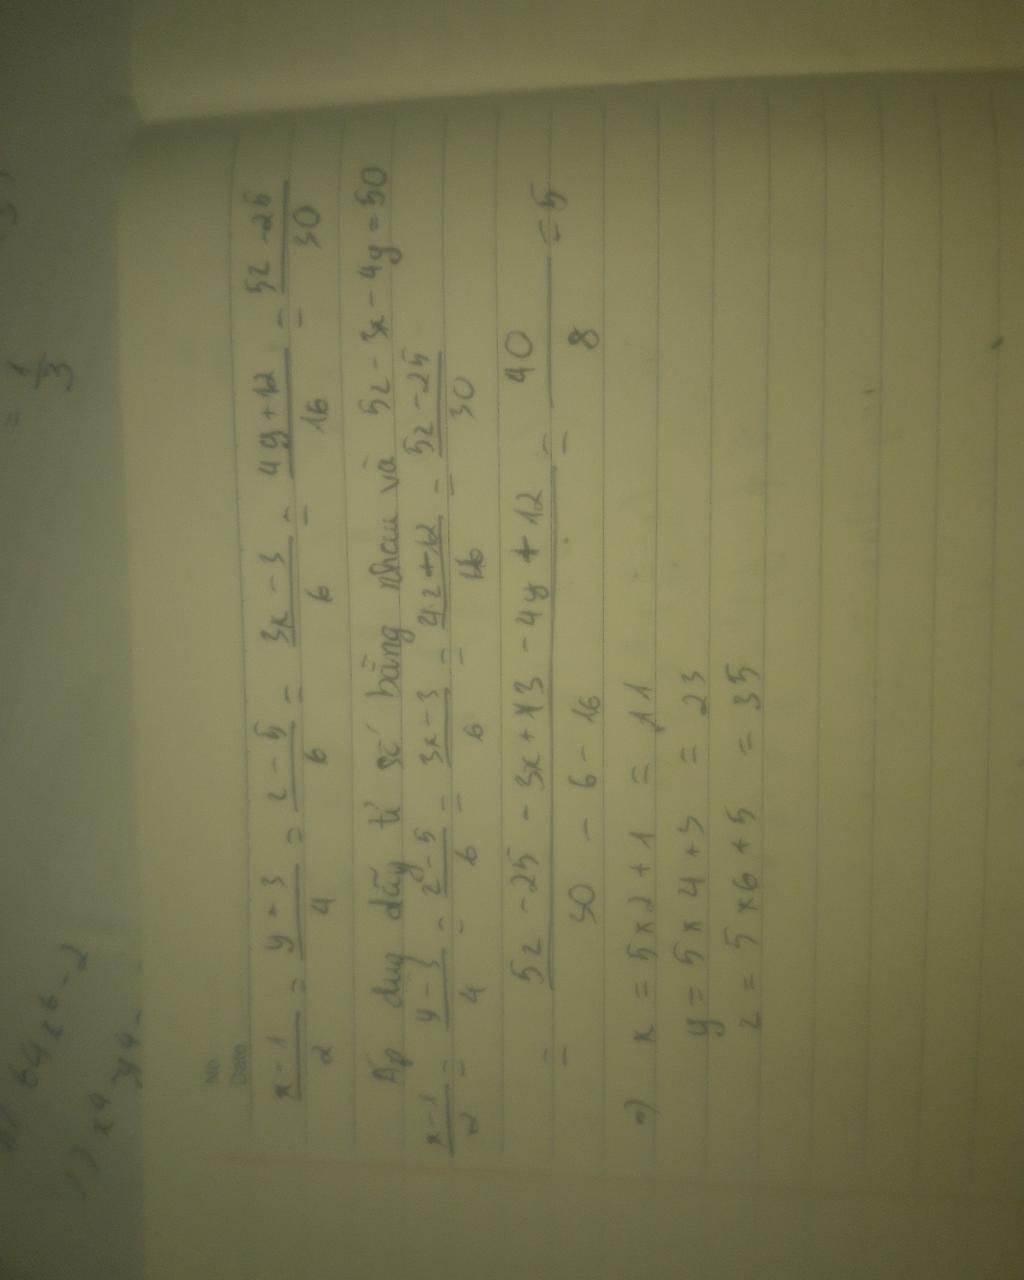 = 1/3
64z6 - 2
x4 y4
No.
Date
x-1/2 = y-3/4 = z-5/6 = 3x-3/6 = 4y+12/16 = 5z-25/30
Áp dụg dãy tỉ số bằng nhau và 5z - 3x - 4y = 50
x-1/2 = y-3/4 = z-5/6 = 3x-3/6 = 4z+12/16 = 5z-25/30
= 5z - 25 - 3x + 3 - 4y + 12/30 - 6 - 16 = 40/8 = 5
=) x = 5 x 2 + 1 = 11
y = 5 x 4 + 3 = 23
z = 5 x 6 + 5 = 35